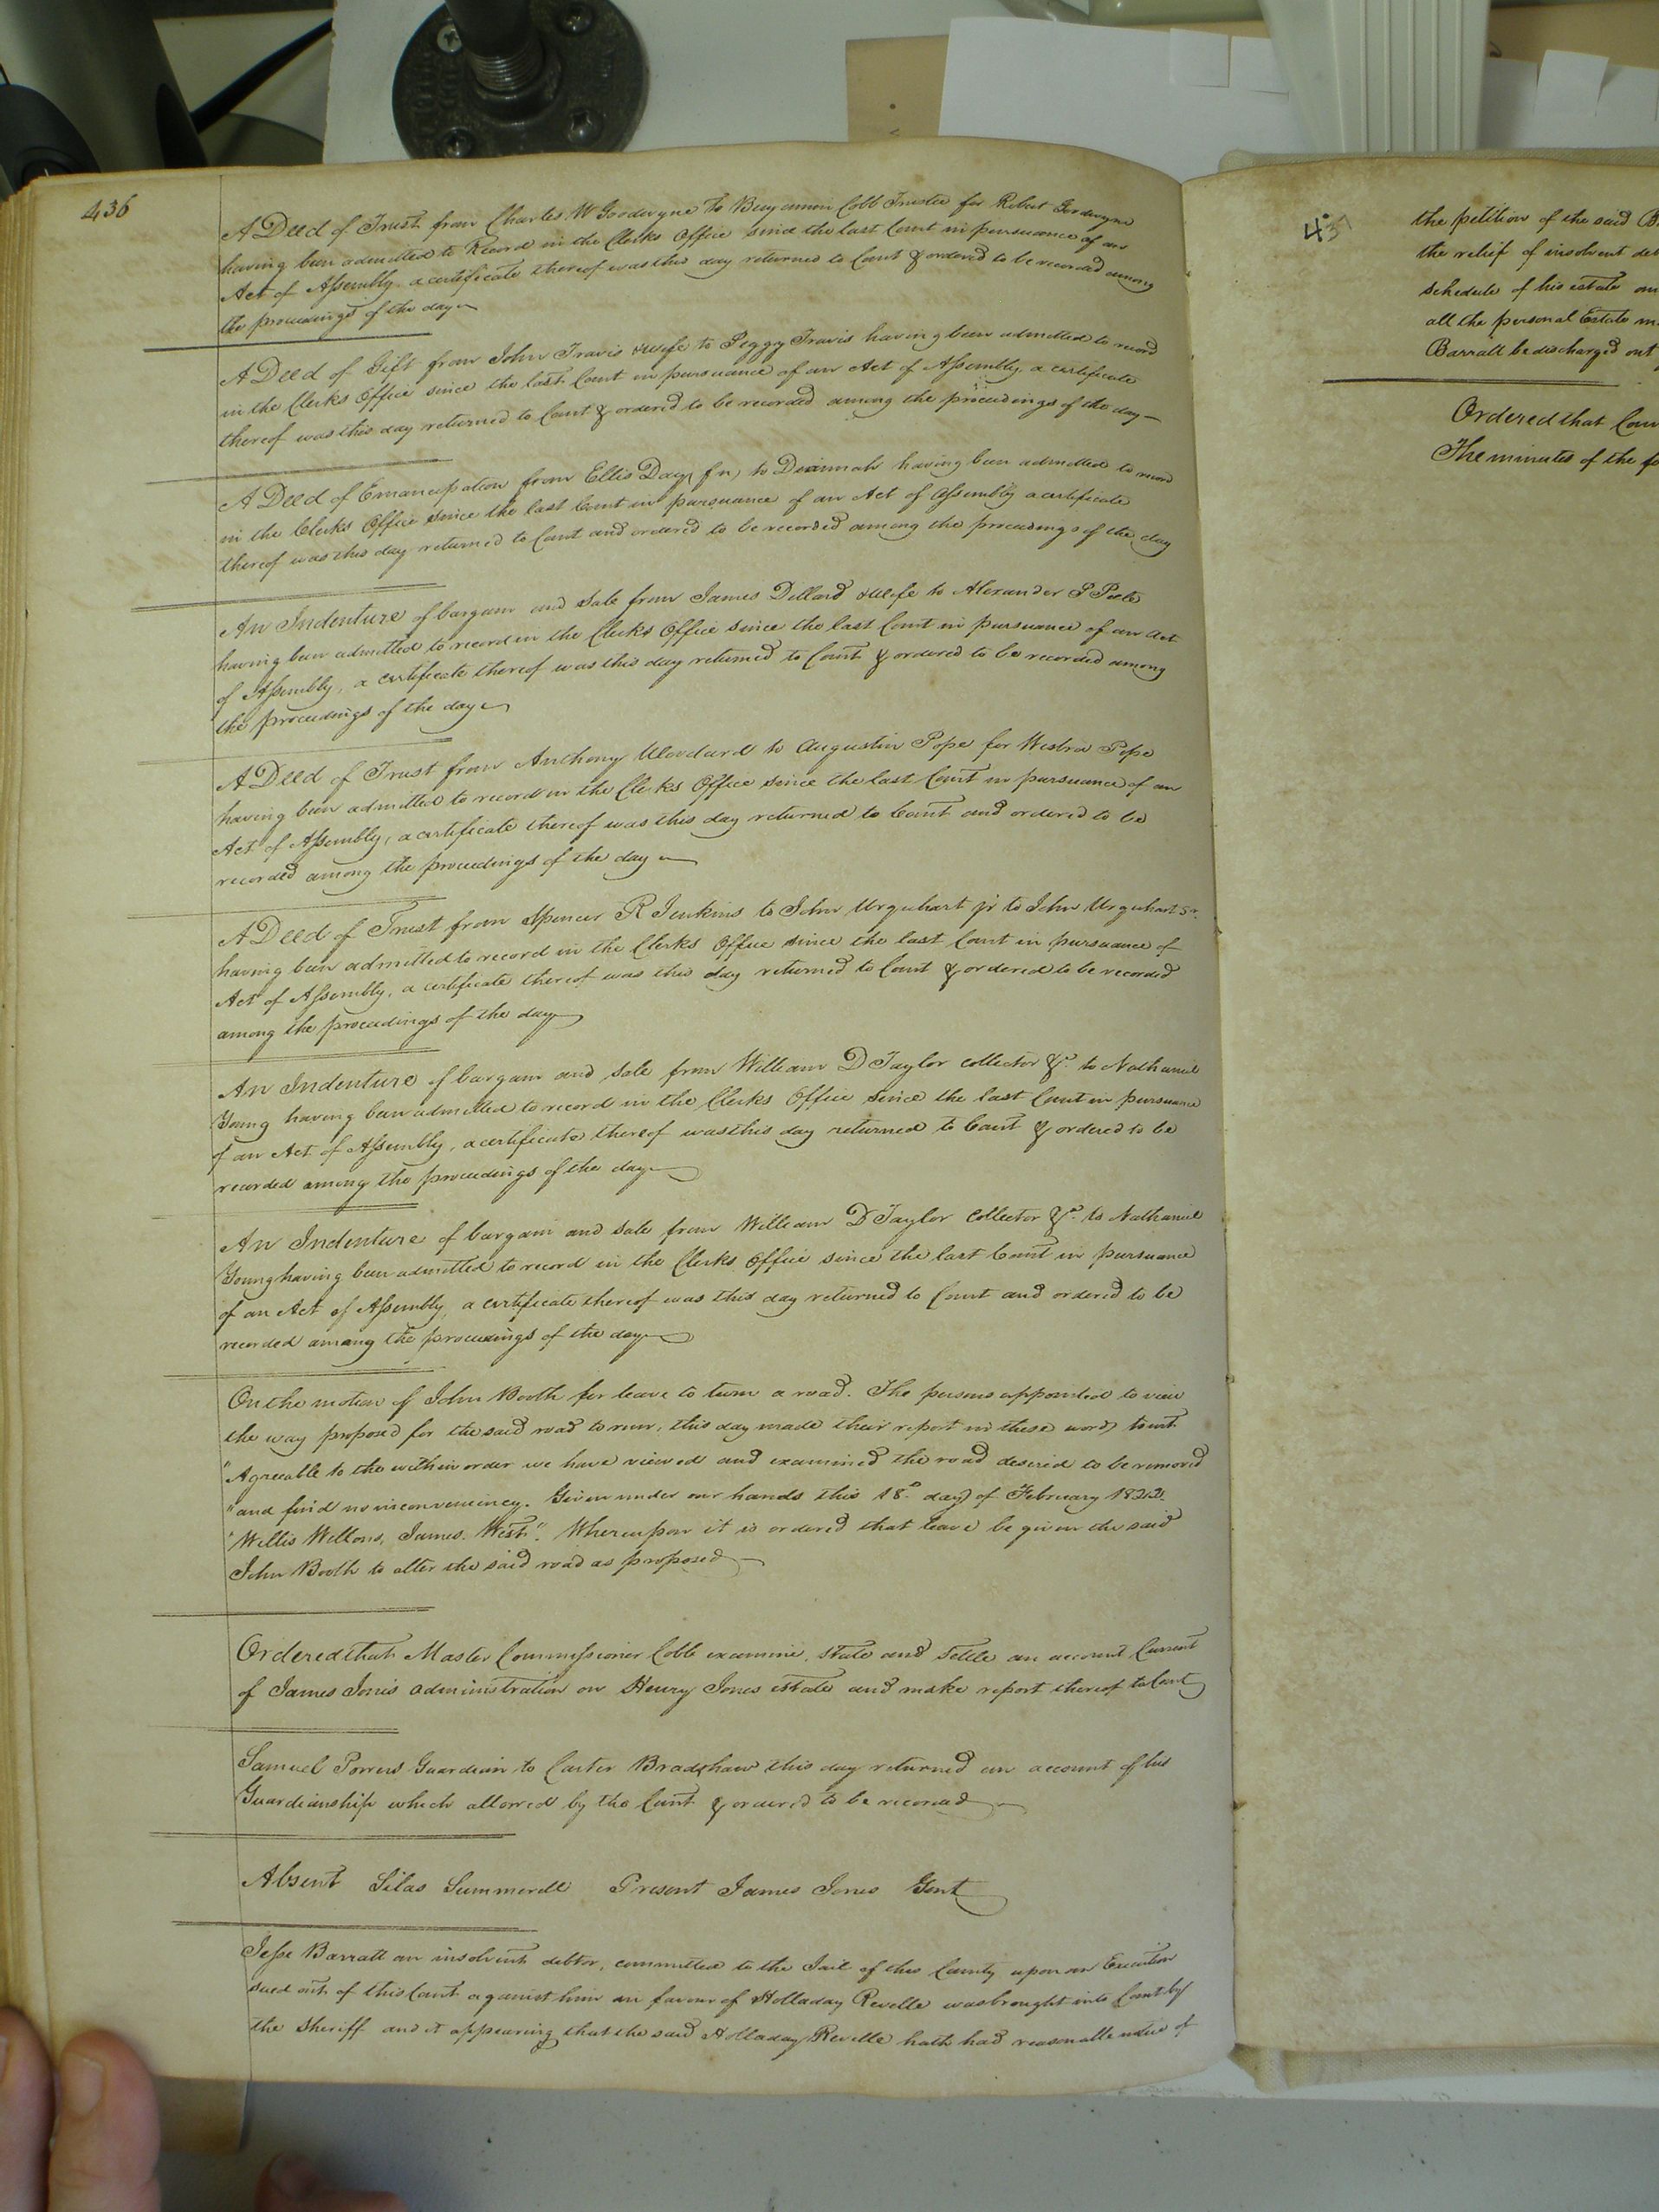 436
A Deed of Trust from Charles W Goodwyne to Benjamin Cobb Trustee for Robert Goodwyne
having been admitted to Record in the Clerks Office since the last Court in pursuance of an
Act of Assembly a certificate thereof was this day returned to Court & ordered to be recorded among
the proceedings of the day
A Deed of Gift from John Travis & wife to Peggy Travis having been admitted to record
in the Clerks Office since the last Court in pursuance of an Act of Assembly a certificate
thereof was this day returned to Court & ordered to be recorded among the proceedings of the day
A Deed of Emancipation from Ellis Day (fn) to having been admitted to record
in the Clerks Office since the last Court in pursuance of an Act of Assembly a certificate
thereof was this day returned to Court and ordered to be recorded among the proceedings of the day
An Indenture of bargain and Sale from James Dillard & wife to Alexander P Peete
having been admitted to record in the Clerks Office since the last Court in pursuance of an Act
of Assembly, a certificate thereof was this day returned to Court & ordered to be recorded among
the proceedings of the day
A Deed of Trust from Anthony Woodard to Augustin Pope for Pope
having been admitted to record in the Clerks Office since the last Court in pursuance of an
Act of Assembly, a certificate thereof was this day returned to Court and ordered to be
recorded among the proceedings of the day
A Deed of Trust from Spencer R Jenkins to John Urquhart jr to John Urquhart Sr.
having been admitted to record in the Clerks Office since the last Court in pursuance of
Act of Assembly, a certificate thereof was this day returned to Court & ordered to be recorded
among the proceedings of the day
An Indenture of bargain and Sale from William D Taylor collector &c. to Nathaniel
Young having been admitted to record in the Clerks Office since the last Court in pursuance
of an Act of Assembly, a certificate thereof was this day returned to Court & ordered to be
recorded among the proceedings of the day
An Indenture of bargain and Sale from William D Taylor Collector &c. to Nathaniel
Young having been admitted to record in the Clerks Office since the last Court in pursuance
of an Act of Assembly, a certificate thereof was this day returned to Court and ordered to be
recorded among the proceedings of the day
On the motion of John Booth for leave to turn a road. The persons appointed to view
the way proposed for the said road to run, this day made their report in these words towit
"Agreeable to the within order we have viewed and examined the road desired to be removed
"and find no inconveniency. Given under our hands this 18th. day of February 1822.
"Willis Willons, James West". Whereupon it is ordered that leave be given the said
John Booth to alter the said road as proposed
Ordered that Master Commissioner Cobb examine, state and settle an account Current
of James Jones administration on Henry Jones estate and make report thereof to Court
Samuel Guardian to Carter Bradshaw this day returned an account of his
Guardianship which allowed by the Court & ordered to be recorded
Absent Silas Summerell Present James Jones Gent
Jesse Barratt an insolvent debtor, committed to the Jail of this County upon an Execution
sued out of this Court against him in favour of Holladay Revelle was brought into Court by
the Sheriff and it appearing that the said Holladay Revelle hath had reasonable notice of
437
the petition of the said B
the relief of insolvent deb
schedule of his estate an
all the personal Estate m
Barratt be discharged out
Ordered that Cour
The minutes of the fo